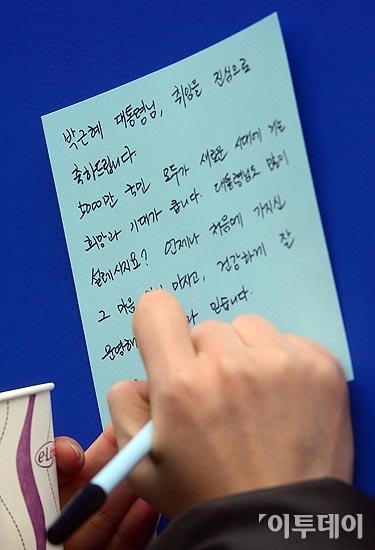 박근혜 대통령님, 취임을 진심으로
축하드립니다.
5000만 국민 모두가 새로운 시대에 거는
희망과 기대가 큽니다. 대통령님도 많이
설레시지요? 언제나 처음에 가지신
그 마음 마시고, 건강하게 잘
운영해 믿습니다.
이투데이